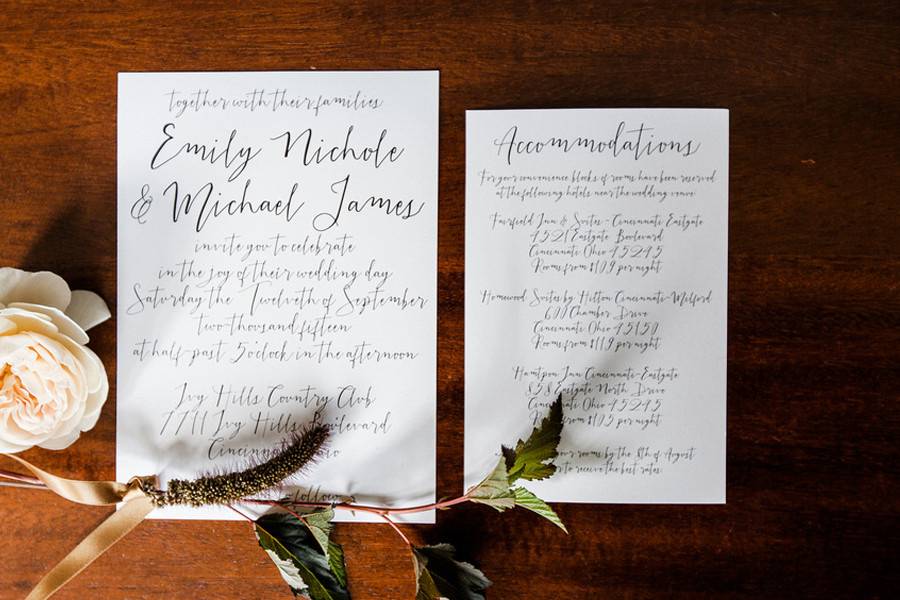 together with their families
Emily Nichole
& Michael James
invite you to celebrate
in the joy of their wedding day
Saturday the Twelveth of September
two-thousand fifteen
at half-past 5 o'clock in the afternoon
Ivy Hills Country Club
7711 Ivy Hills Boulevard
Cincinn io
follow
Accommodations
For your convenience blocks of rooms have been reserved
at the following hotels near the wedding venue
Fairfield Inn & Suites - Cincinnati Eastgate
4521 Eastgate Boulevard
Cincinnati Ohio 45245
Rooms from $109 per night
Homewood Suites by Hilton Cincinnati-Milford
600 Chamber Drive
Cincinnati Ohio 45150
Rooms from $119 per night
Hamtpon Inn Cincinnati-Eastgate
858 Eastgate North Drive
Ohio 45245
from $105 per night
our rooms by the 8th of August
to receive the best rates